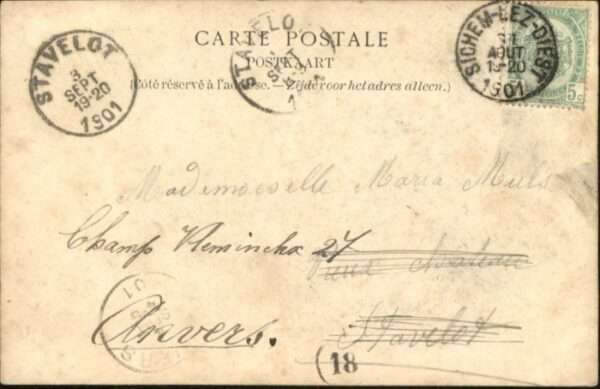 STAVELOT
3
SEPT
19-20
1901
STAVELO
SEPT
1
SICHEM-LEZ-DIEST
31
AOUT
19-20
1901
5c
CARTE POSTALE
POSTKAART
(Côté réservé à l'adresse.—Zijde voor het adres alleen.)
Mademoiselle Maria Muls
Champ Vleminckx 27
vieux château
Anvers.
Stavelot
01
18